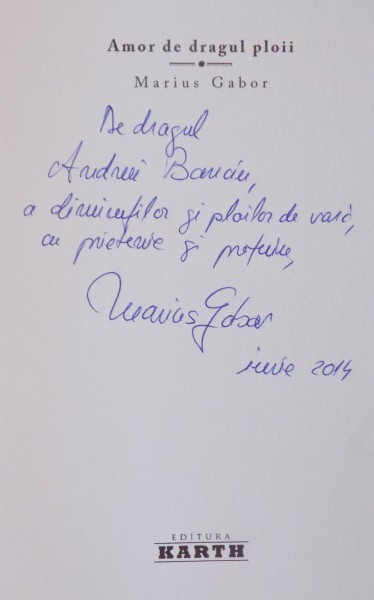 Amor de dragul ploii
Marius Gabor
De dragul
Andrei Banciu,
a dimineților și ploilor de vară,
cu prietenie și prețuire,
Marius Gabor
iunie 2014
EDITURA
KARTH